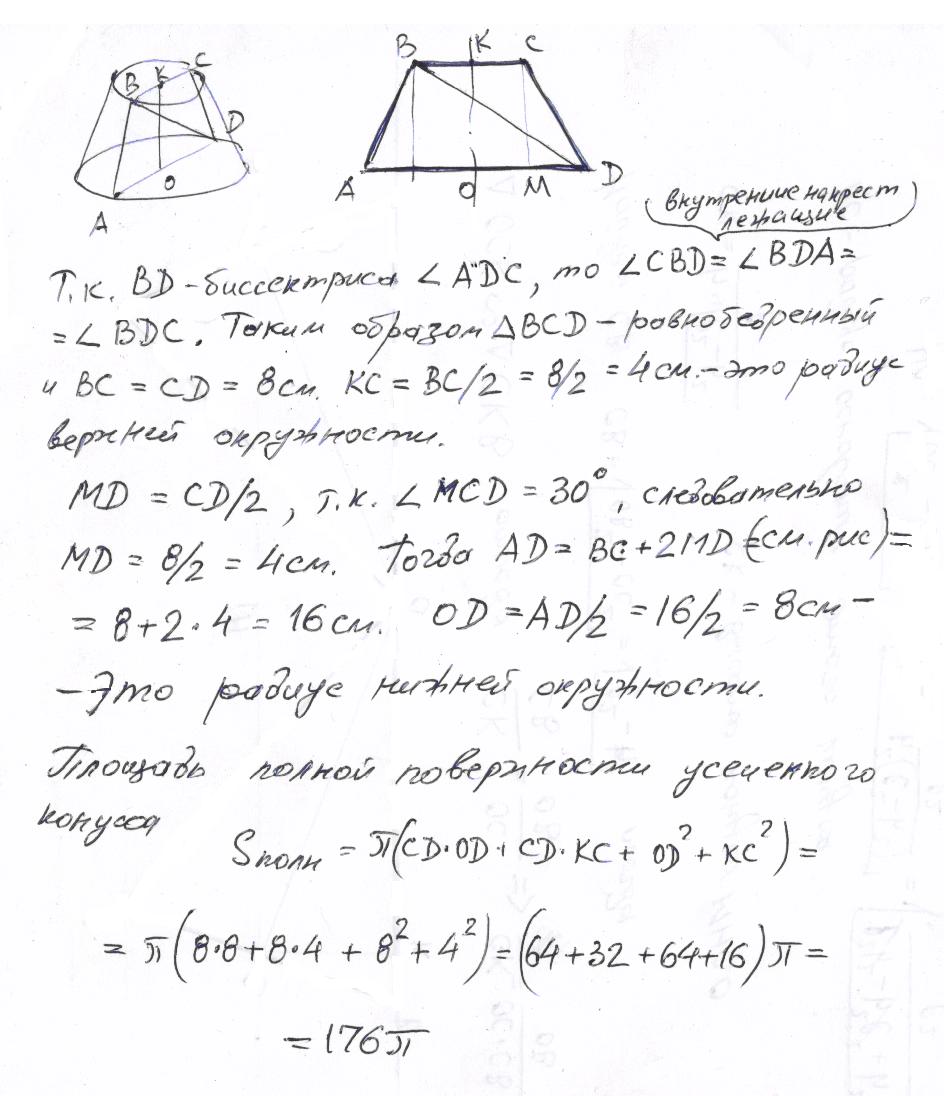 B K C
B K C
D
O
A
A O M D
внутренние накрест
лежащие
Т.к. BD - биссектриса ∠ADC, то ∠CBD = ∠BDA =
= ∠BDC. Таким образом △BCD - равнобедренный
и BC = CD = 8см. KC = BC/2 = 8/2 = 4см. - это радиус
верхней окружности.
MD = CD/2, т.к. ∠MCD = 30°, следовательно
MD = 8/2 = 4см. Тогда AD = BC + 2MD (см. рис) =
= 8 + 2·4 = 16см. OD = AD/2 = 16/2 = 8см -
- Это радиус нижней окружности.
Площадь полной поверхности усеченного
конуса
Sполн = π(CD·OD + CD·KC + OD² + KC²) =
= π(8·8 + 8·4 + 8² + 4²) = (64 + 32 + 64 + 16)π =
= 176π